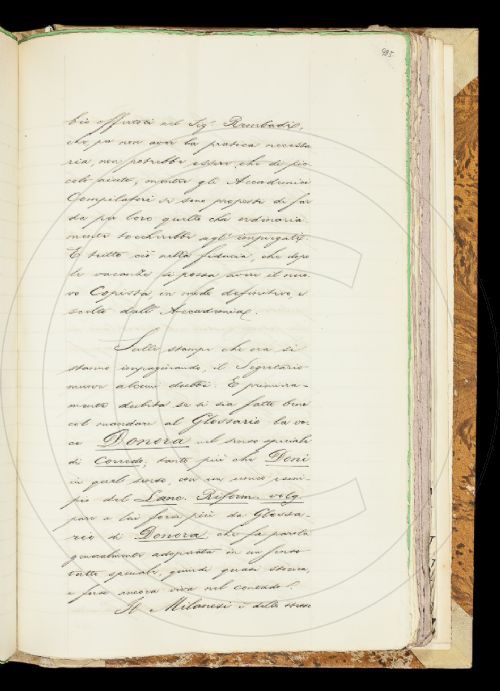 995.
bio offertoci nel Sigr. Rombadi,
che pa non aver la pratica necessa
ria, non potrebbe essere che di pic-
colo aiuto, mentre gli Accademici
Compilatori si sono proposti di far
da pa loro quello che ordinaria
mente toccherebbe agl' impiegati.
E tutto ciò nella fiducia, che dopo
le vacanze si possa avere il nuo-
vo Copista in modo definitivo, e
scelto dall' Accademia.
Sulle stampe che ora si
stanno impaginando, il Segretario
muove alcuni dubbi. E primiera-
mente dubita se si sia fatto bene
col mandare al Glossario la vo-
ce Donora nel senso speciale
di Corredo; tanto più che Doni
in quel senso, con un unico esem-
pio del Lanc. Riform. volg.
pare a lui forse più da Glossa-
rio di Donora che fu parola
generalmente adoperata in un senso
tutto speciale, quindi quasi storica,
e forse ancora viva nel contado.
Il Milanesi è dello stesso